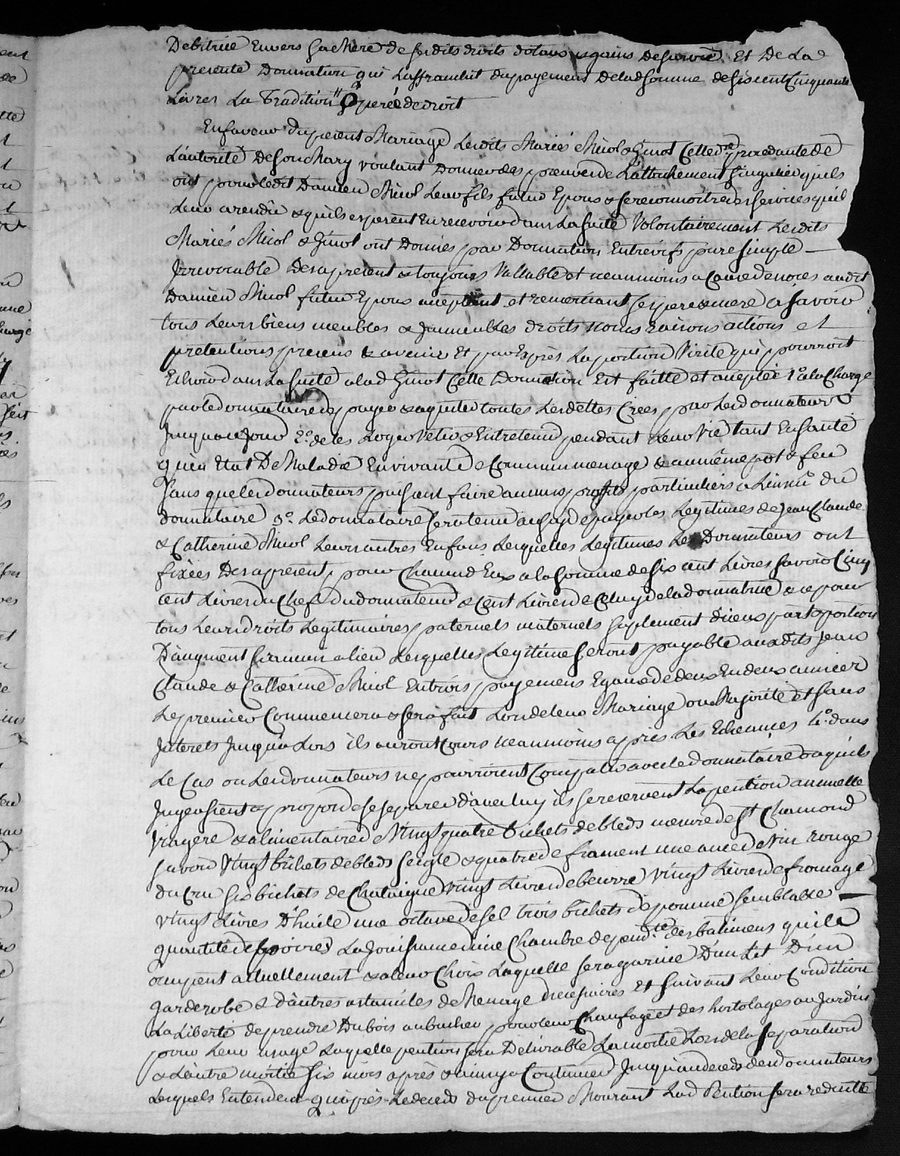 Debitrice Envers sa chere desdits droits dotaux gains de survie, Et De La
presente Donnation qui L'affranchit du payement De lad somme de six cent Cinquante
Livres La Tradition operée de droit
En faveur du present Mariage Lesdits Mariés Nicol & Ginot Celle cy procedante de
L'autorité De son Mary voulant Donner des preuves de L'attachement singulier qu'ils
ont pour ledit Damien Nicol Leur fils futur Epoux & reconnoitre des services qu'il
Leur a rendu & qu'ils esperent En recevoir dans La suite Volontairement Lesdits
Mariés Nicol & Ginot ont Donnés par Donnation Entrevifs pure simple
Irrevocable Des a present & toujours Vallable et neanmoins a Cause de noces audit
Damien Nicol futur Epoux acceptant et remerciant ses pere & mere a savoir
tous Leurs biens meubles & Immeubles droits noms raisons actions et
pretentions presens & avenir Et par Exprès La portion Virile qui pourroit
Echoir dans La suite a lad Ginot Cette Donnation Est faitte et acceptée 1° a la Charge
par le donnataire de payer & aquiter toutes Les dettes Crées par Les donnateurs
Jusqu'a ce jour 2° de les Loger Vetir & Entretenir pendant Leur Vie tant En santé
qu'en Etat De Maladie En vivant de Commun menage & au même pot & feu
sans que les donnateurs puissent faire aucuns profits particuliers a L'insçu du
donnataire 3° Le donnataire sera tenu au payé des Legitimes de Jean Claude
& Catherine Nicol Leurs autres Enfans Lesquelles Legitimes Les Donnateurs ont
fixées Des a present pour Chacun d'Eux a la somme de six cent Livres savoir Cinq
cent Livres du Chef du donnateur & Cent Livres de Celuy de la donnatrice & ce pour
tous Leurs droits Legitimaires paternels maternels suplement d'iceux part & portion
D'augment si aucun a lieu Lesquelles Legitime seront payable auxdits Jean
Claude & Catherine Nicol En trois payemens Egaux de deux En deux années
Le premier Commencera & sera fait Lors de leur Mariage ou Majorité et sans
Interets Jusqu'a Lors ils auront Cours neanmoins après Les Echeances 4° dans
Le Cas ou Les donnateurs ne pourroient Compatir avec le donnataire ou qu'ils
Jugeassent a propos de se separer d'avec luy ils se reservent La pention annuelle
viagere & alimentaire de Vingt quatre bichets de bleds mesure de St Chamond
savoir Vingt bichets de bleds seigle & quatre de froment une anée de Vin rouge
du Cru six bichets de Chataigne vingt Livres de beurre vingt Livres de fromage
Vingt Livres D'huile une octave de sel trois bichets de pomme semblable
quantité de poires La Jouissance d'une Chambre des batimens qu'ils
occupent actuellement & a leur Choix Laquelle sera garnie D'un Lit D'un
garderobe & d'autres ustanciles de Menage necessaires Et suivant Leur Condition
La Liberté de prendre Du bois au bucher pour leur Chaufage et des hortolages au Jardin
pour Leur usage Laquelle pention sera Delivrable La moitié Lors de la separation
& L'autre moitié six mois après & ainsy a Continuer Jusqu'au deces des donnateurs
Lesquels Entendent qu'après Le deces du premier Mourant Lad Pention sera reduitte